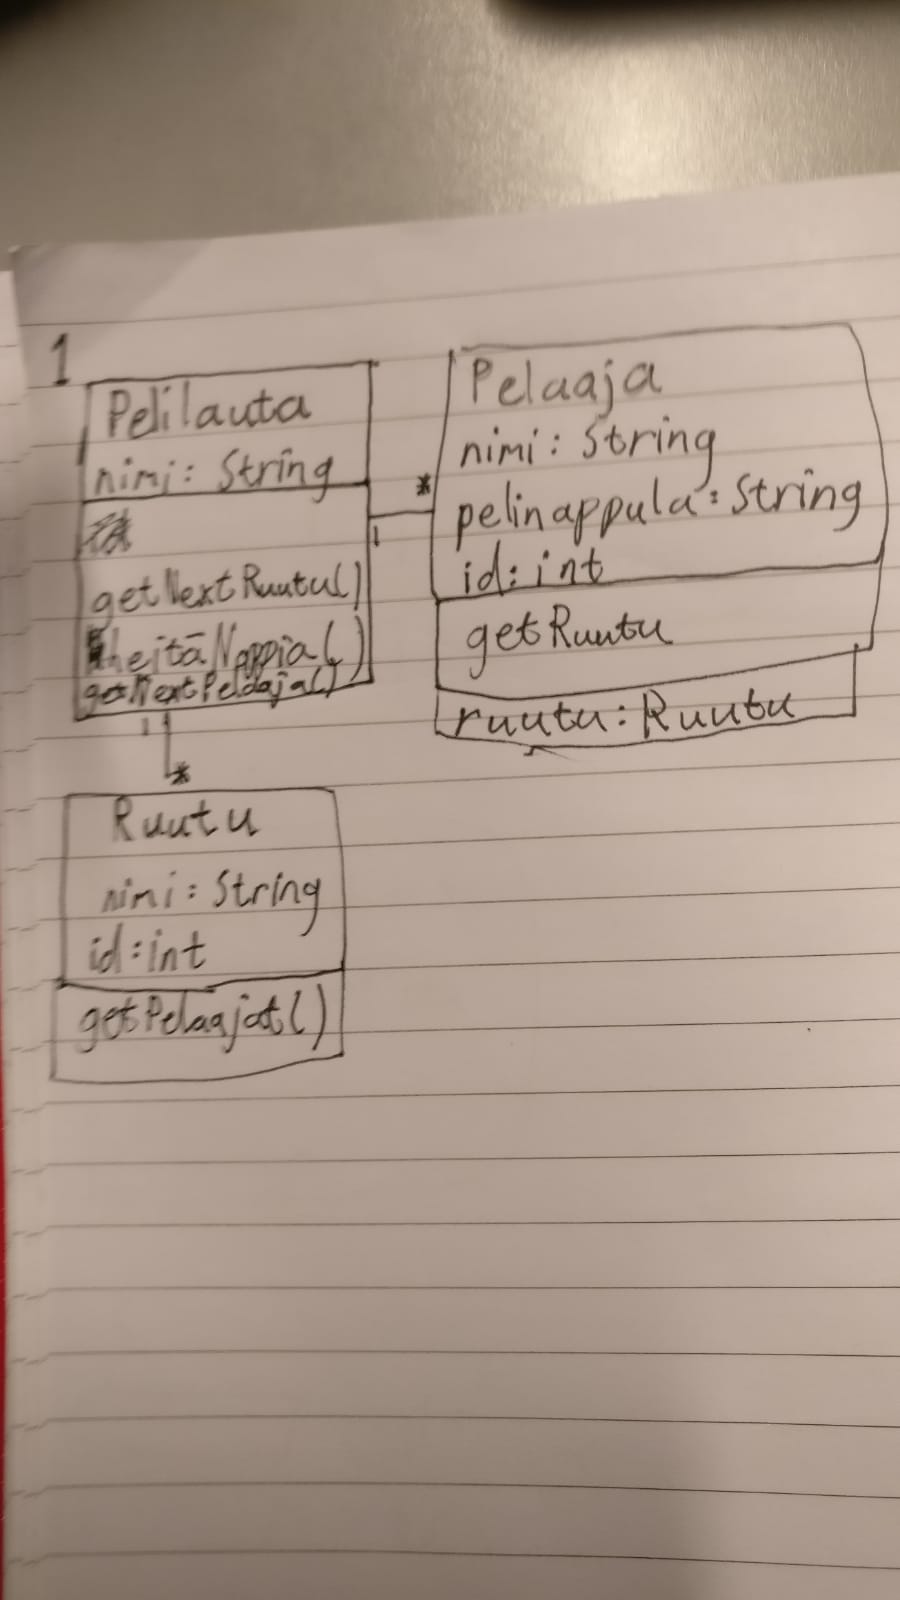 1
Pelilauta
nimi: String
getNextRuutu()
heitäNoppia()
getNextPelaaja()
1
*
1
*
Pelaaja
nimi: String
pelinappula: String
id: int
getRuutu
ruutu: Ruutu
Ruutu
nimi: String
id: int
getPelaajat()